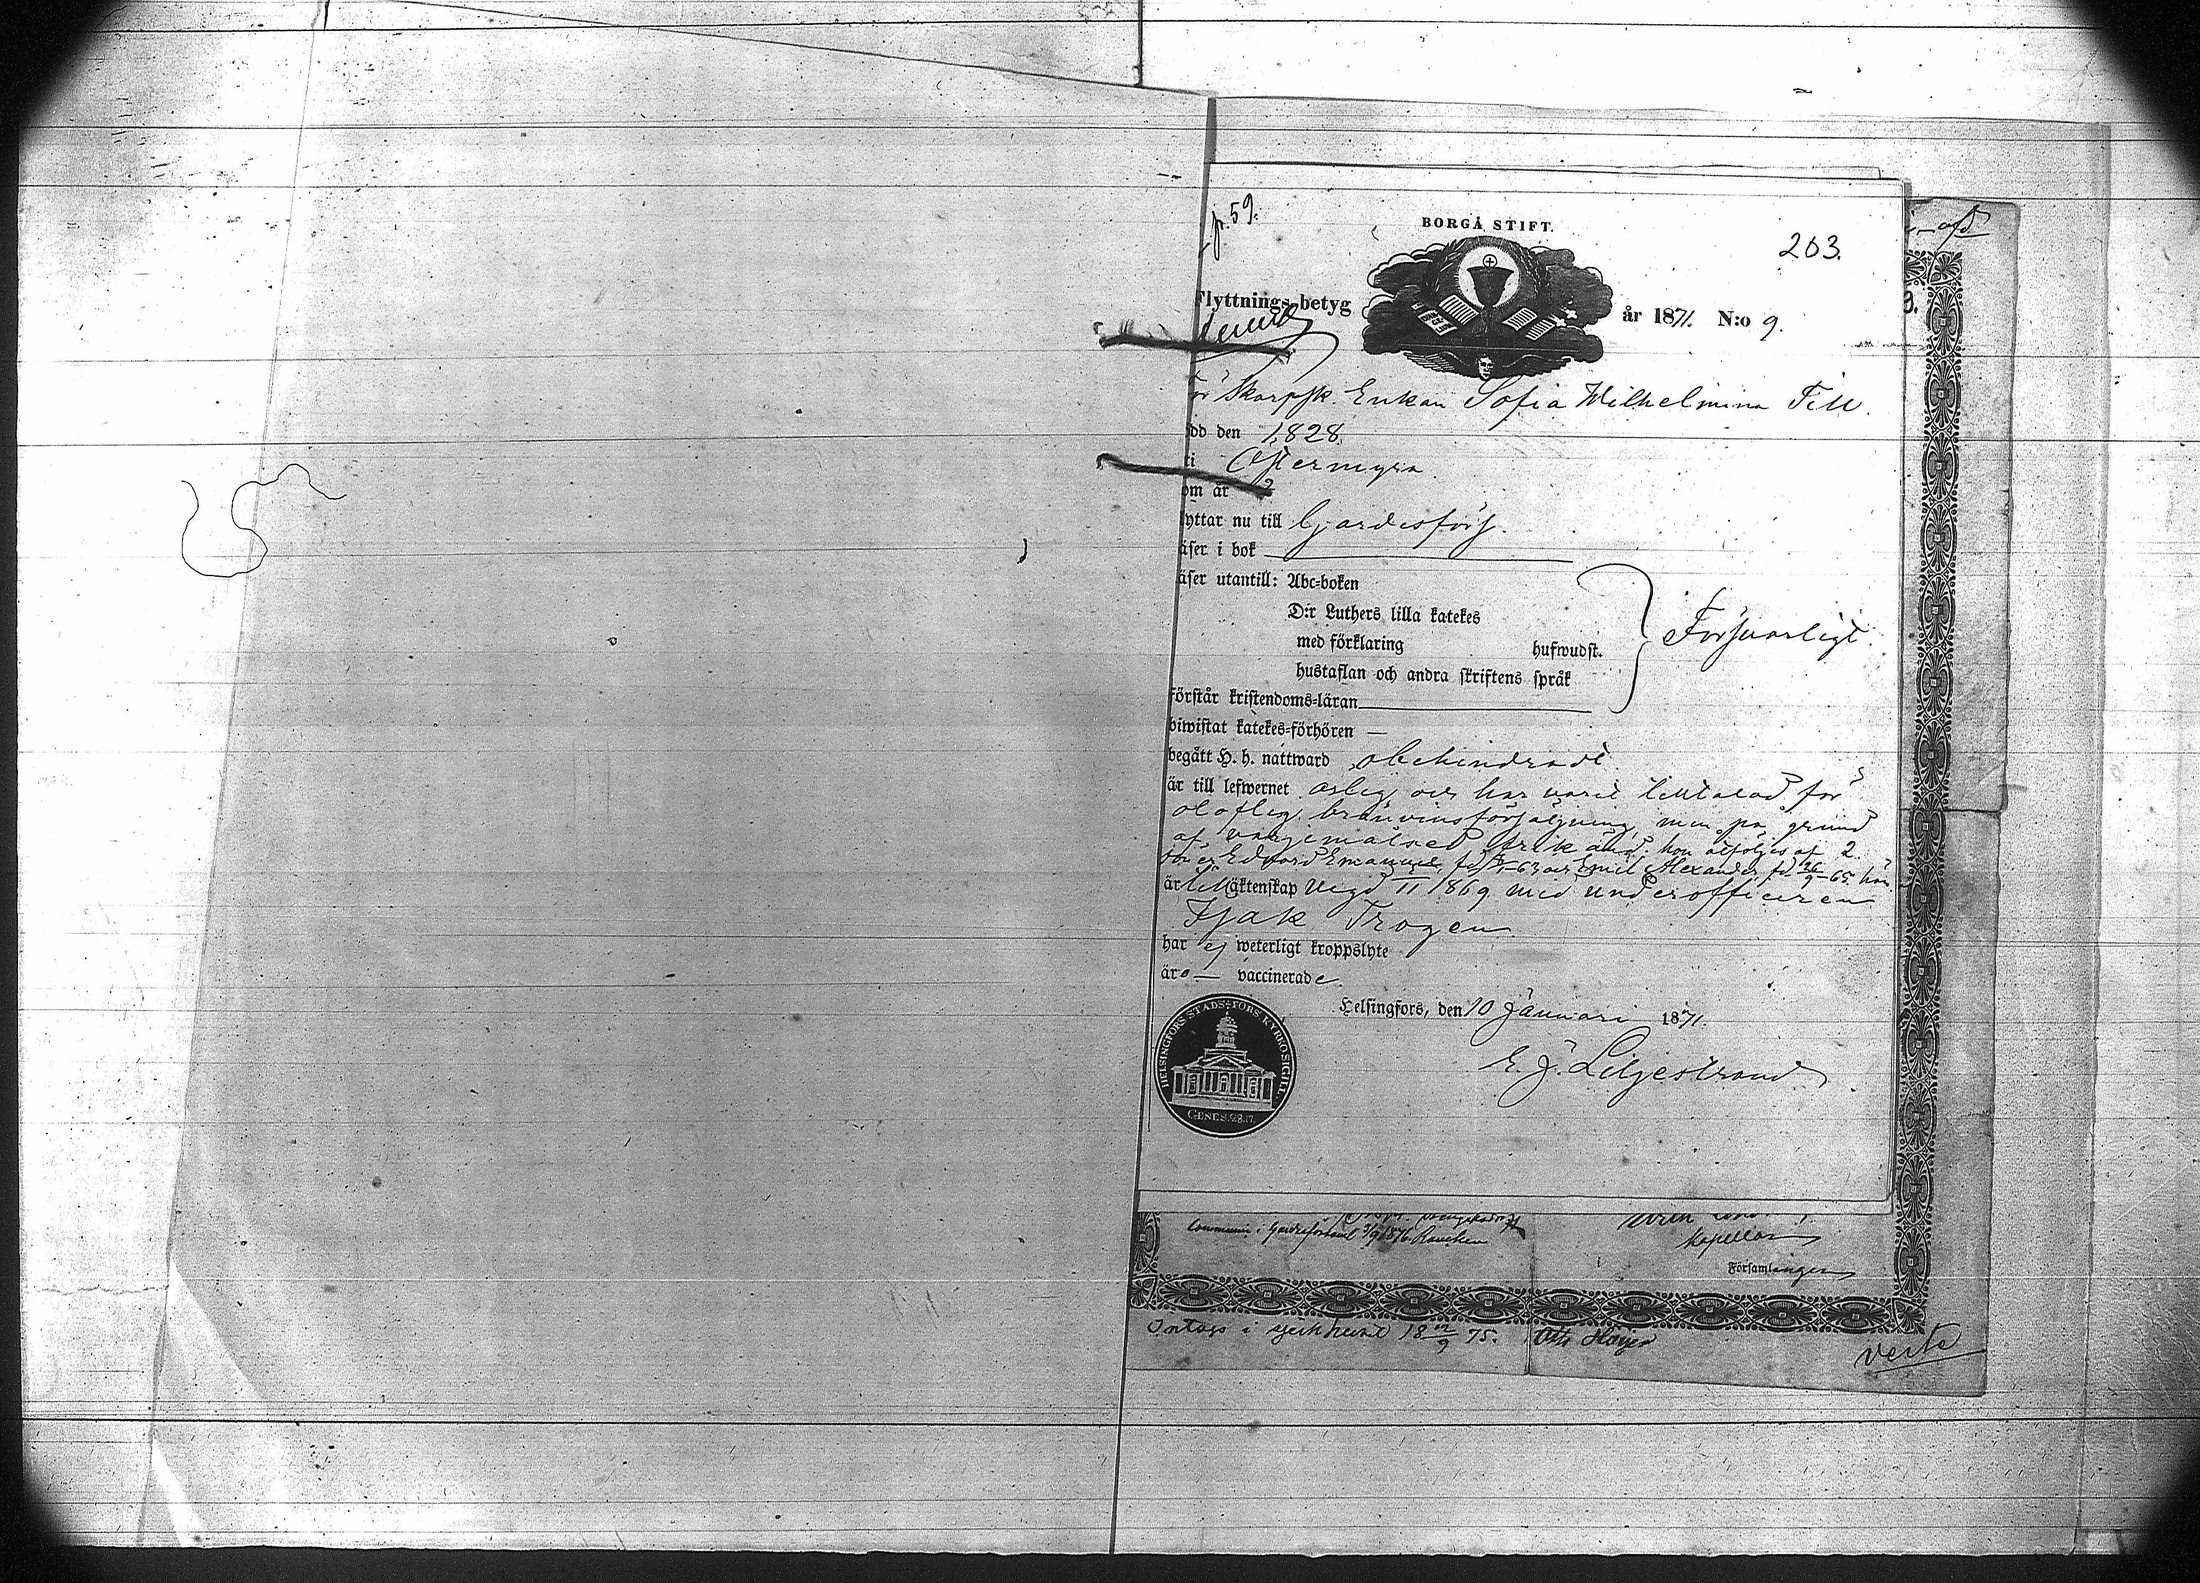 p. 59.
BORGÅ STIFT.
203.
Flyttnings-betyg
år 1871. N:o 9.
för Skarpsk. Enkan Sofia Wilhelmina Till.
född den 1828
i Östermyra
om år
flyttar nu till Gardesförs.
läser i bok
läser utantill: Abc-boken
D:r Luthers lilla katekes
med förklaring hufwudst.
hustaflan och andra skriftens språk
Försvarligt.
förstår kristendoms-läran
biwistat katekes-förhören —
begått H. h. nattward obehindradt.
är till lefwernet ärlig, har varit tilltalad för
olaflig bränvinsförsäljning, men på grund
af värjemålsed frikänd. hon åtföljes af 2
söner Edvard Emanuel, fd -63 och Emil Alexander fd 26/9-65. hon
är till äktenskap Vigd 1869 med underofficeren
Isak Trogen
har ej weterligt kroppslyte
äro — vaccinerade.
Helsingfors, den 10 Januari 1871.
E. J. Liljestrand
HELSINGFORS STADS-FÖRS. KYRKOSIGILL.
GENES. 28.17.
Communic. i Gardesförsaml 3/9 1876. Rancken
Kapellan
Församlingen
Intogs i 18 12/9 75. Otto
verte